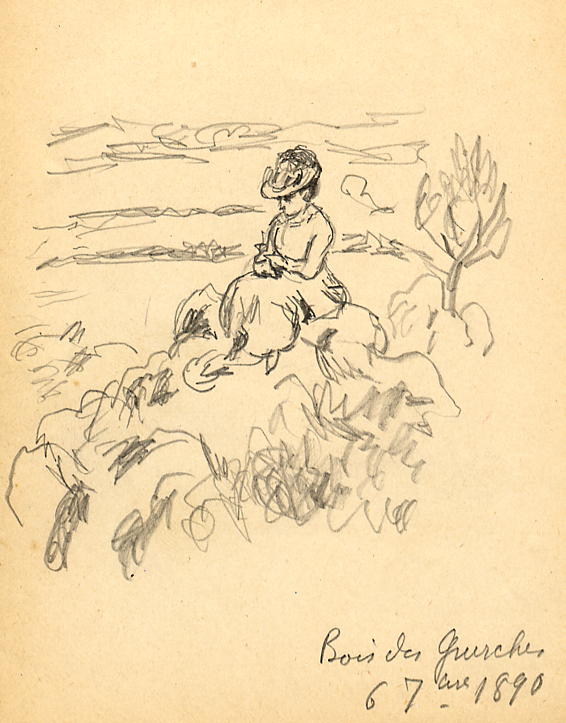 Bois des Guerches
6 7bre 1890